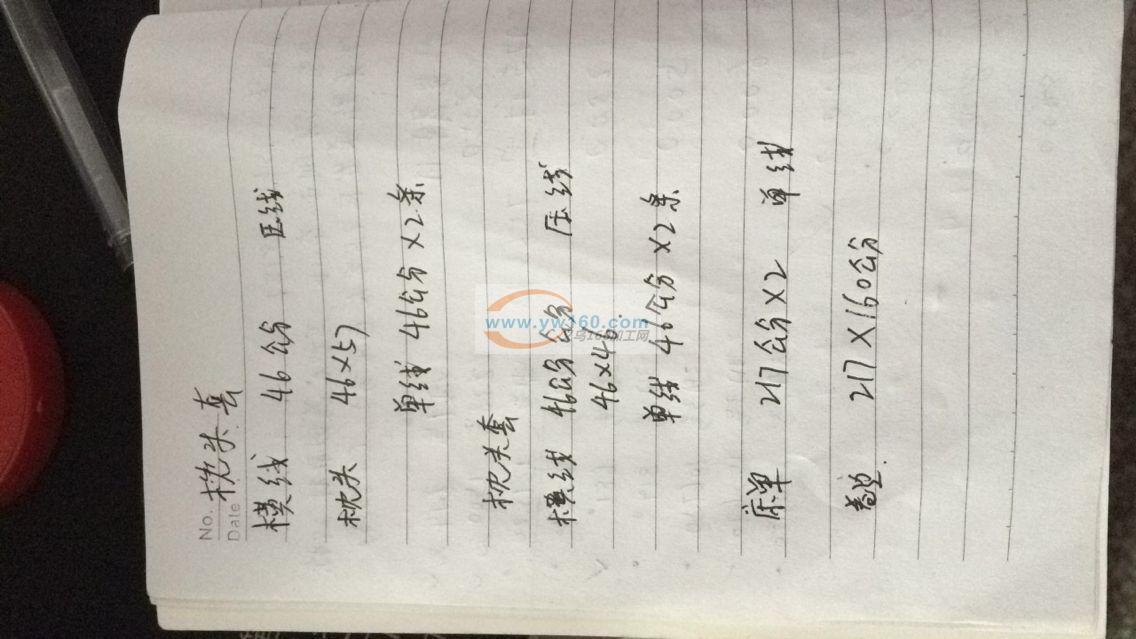 No.
Date
枕头套
横线 46公分 压线
枕头 46×57
单线 46公分×2条
枕头套
横线 46公分公分 压线
46×40.
单线 46公分×2条
床单 217公分×2 单线
卷边. 217×160公分
www.yw160.com
义乌160加工网